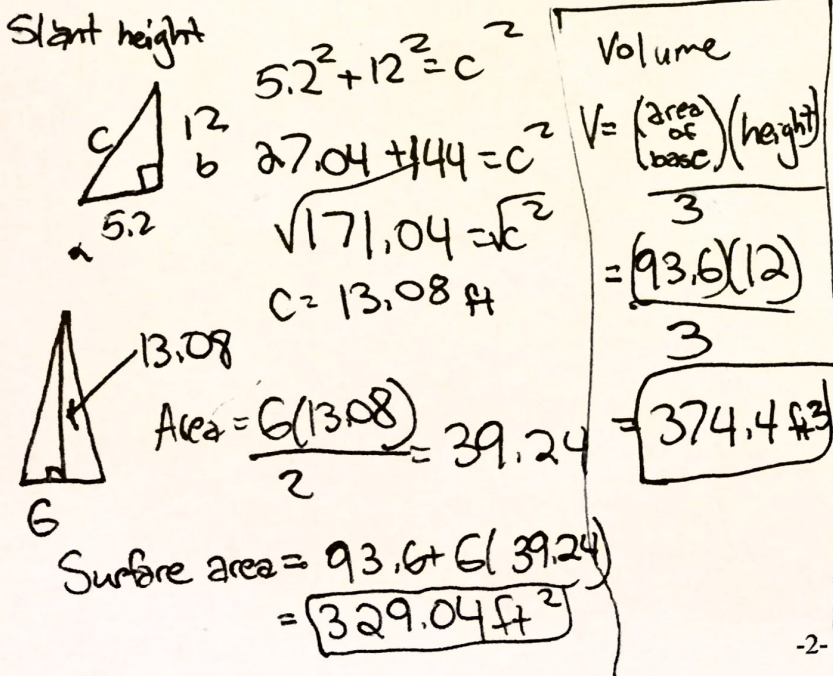 Slant height
5.2² + 12² = c²
c
12
b
5.2
a
27.04 + 144 = c²
√171.04 = √c²
c = 13.08 ft
13.08
6
Area = 6(13.08)
2
= 39.24
Surface area = 93.6 + 6(39.24)
= 329.04 ft²
Volume
V = (area of base)(height)
3
= (93.6)(12)
3
= 374.4 ft³
-2-